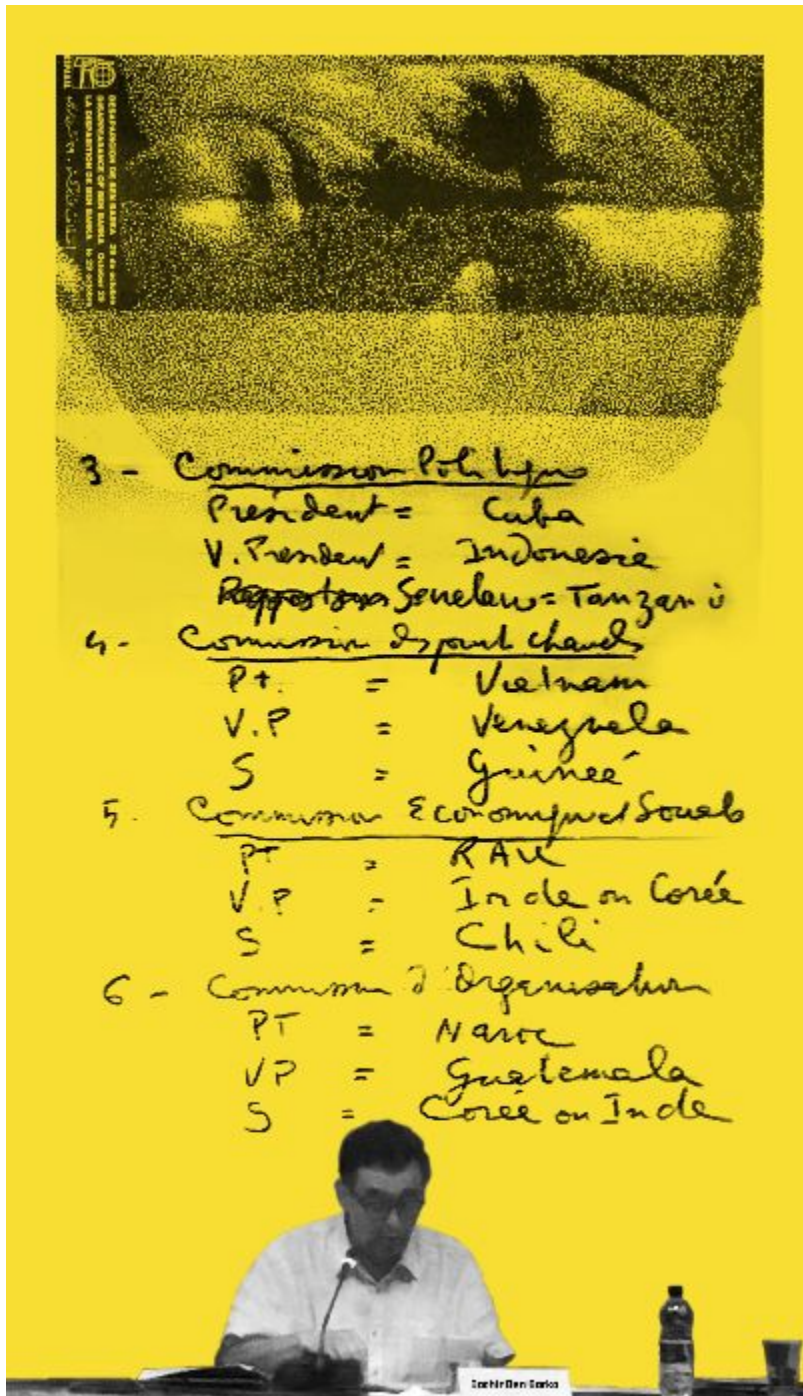 3 - Commission Politique
Président = Cuba
V. President = Indonesie
Rapporteur = Tanzani
4 - Commission des points chauds
Pt. = Vietnam
V.P = Venezuela
S = Guineé
5. Commission Economique et Sociale
PT = RAU
V.P = Inde ou Corée
S = Chili
6 - Commission d'Organisation
PT = Maroc
VP = Guatemala
S = Corée ou Inde
Bachir Ben Barka